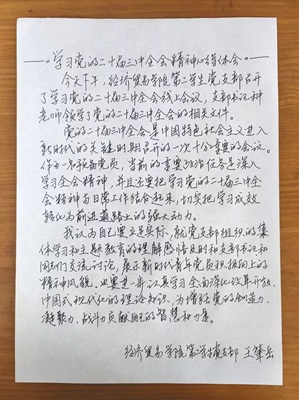 学习党的二十届三中全会精神心得体会
今天下午，经济贸易学院第二学生党支部召开
了学习党的二十届三中全会线上会议，支部书记种
老师领学了党的二十届三中全会的相关文件。
党的二十届三中全会是中国特色社会主义进入
新时代的关键时期召开的一次十分重要的会议。
作为一名预备党员，当前的重要政治任务是深入
学习全会精神，并且还要把学习党的二十届三中全
会精神与日常工作结合起来，切实把学习成效
转化为前进道路上的强大动力。
我认为自己要立足实际，就党支部组织的集
体学习和主题教育的理解感悟及时和支部书记和
同志们交流讨论，展示新时代青年党员积极向上的
精神风貌，也要进一步认真学习全面深化改革开放、
中国式现代化的理论知识，为增强党的创造力、
凝聚力、战斗力贡献自己的智慧和力量。
经济贸易学院第二学生党支部 王肇岳